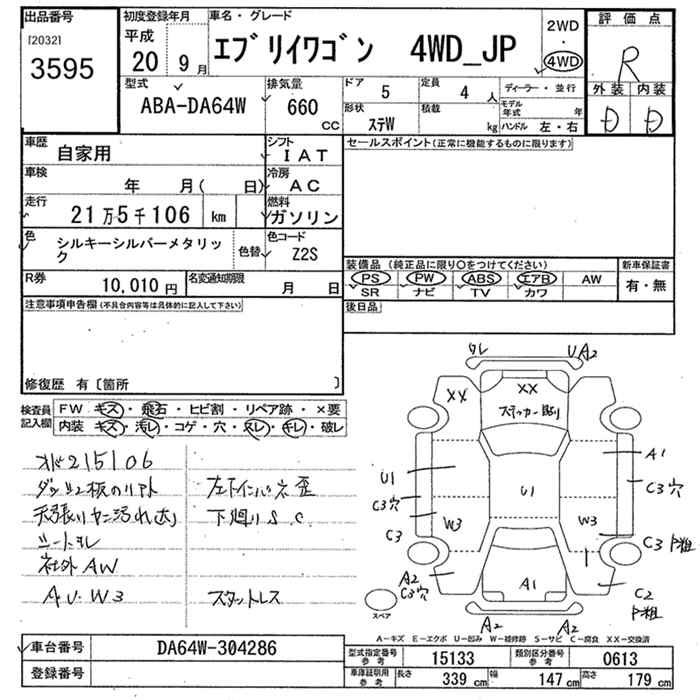 出品番号
[2032]
3595
初度登録年月
平成
20 9月
車名・グレード
エブリイワゴン 4WD_JP
2WD
・
4WD
評価点
R
型式
ABA-DA64W
排気量
660
CC
ドア
5
定員
4人
形状
ステW
積載
kg
ディーラー・並行
モデル年式 年
ハンドル 左・右
外装 内装
D D
車歴
自家用
シフト
IAT
車検
年 月( 日)
冷房
AC
走行
21万5千106 km
燃料
ガソリン
色
シルキーシルバーメタリック
色替
色コード
Z2S
R券
10,010円
名変通知期限
月 日
セールスポイント(正常に機能するものに限ります)
装備品(純正品に限り○をつけてください)
PS PW ABS エアB AW
SR ナビ TV カワ
新車保証書
有・無
後日品
注意事項申告欄(不具合内容等は具体的に記入して下さい)
修復歴 有〔箇所 〕
検査員記入欄
FW キズ・飛石・ヒビ割・リペア跡・×要
内装 キズ・汚レ・コゲ・穴・スレ・キレ・破レ
215106
シートヨレ
社外AW
AU.W3
下廻りS.C.
スタットレス
ワレ
UA2
XX
XX
ステッカー貼り
A1
U1
C3穴
U1
C3穴
W3
W3
C3
C3
A2
C3穴
A1
C2
A2
A2
スペア
A-キズ E-エクボ U-凹み W-補修跡 S-サビ C-腐食 XX-交換済
車台番号
DA64W-304286
登録番号
型式指定番号
参考
15133
類別区分番号
参考
0613
車庫証明用
参考
長さ
339cm
幅
147cm
高さ
179cm